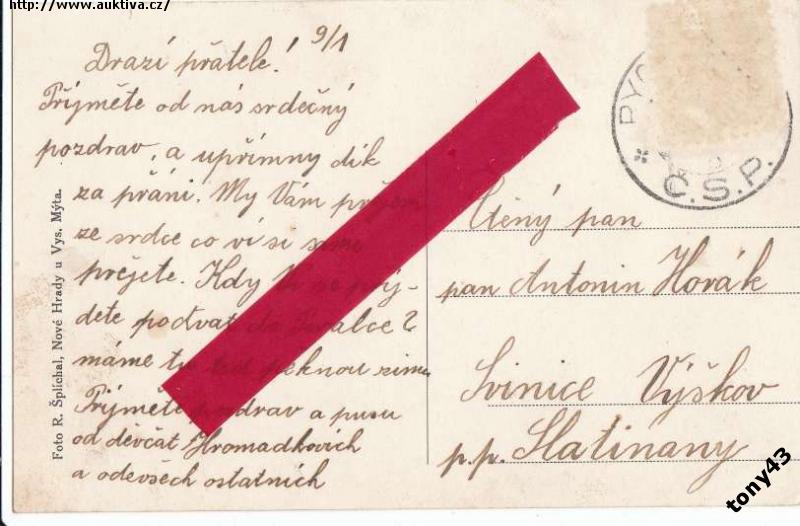 http://www.auktiva.cz/
9/1
Drazí přátele!
Přijměte od nás srdečný
pozdrav, a upřímny dík
za přáni. My Vám
ze srdce co vi si
přejete. Kdy
dete podívat
máme pěknou zimu
Přijměte pozdrav a pusu
od děvčat Hromadkovich
a odevšech ostatních
Foto R. Šplíchal, Nové Hrady u Vys. Mýta.
Č.S.P.
Ctěný pan
pan Antonin Horák
Svinice Výškov
p.p. Slatinany
tony43